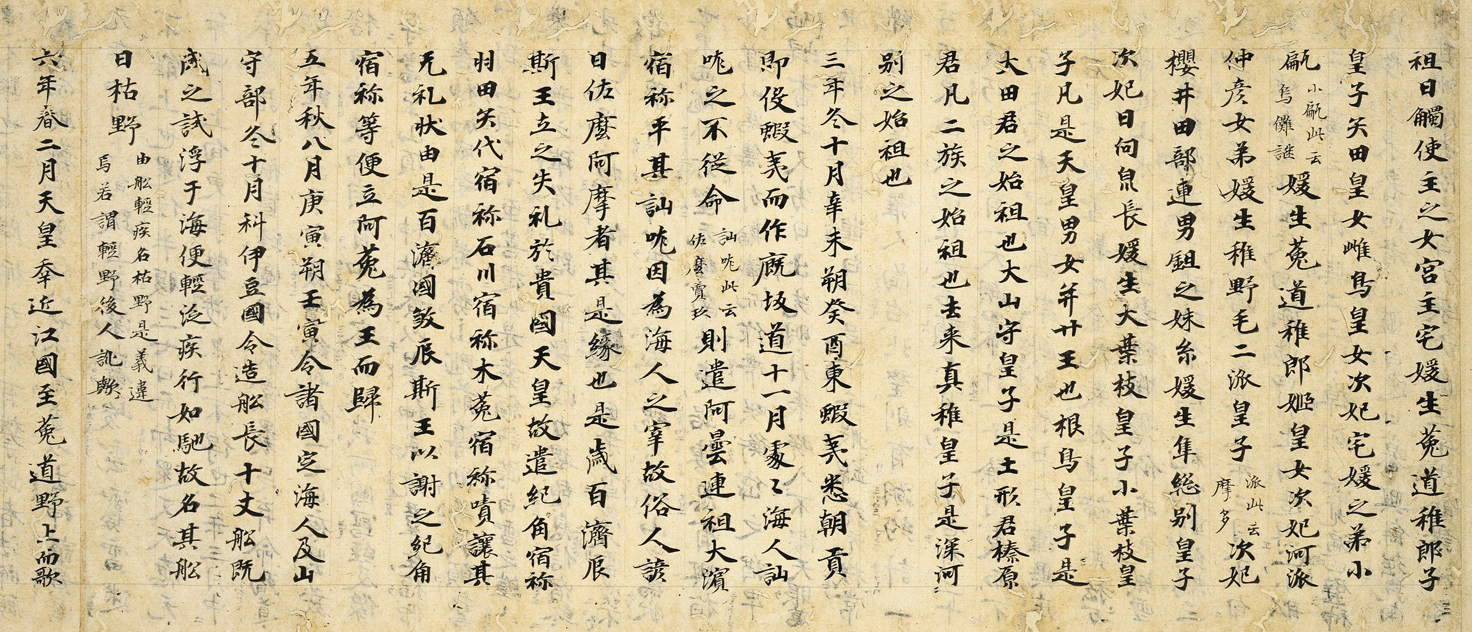 祖日觸使主之女宮主宅媛生菟道稚郎子
皇子矢田皇女雌鳥皇女次妃宅媛之弟小
甂小甂此云烏儺謎媛生菟道稚郎姬皇女次妃河派
仲彦女弟媛生稚野毛二派皇子派此云摩多次妃
櫻井田部連男鉏之妹糸媛生隼総別皇子
次妃日向泉長媛生大葉枝皇子小葉枝皇
子凡是天皇男女并廿王也根鳥皇子是
大田君之始祖也大山守皇子是土形君榛原
君凡二族之始祖也去来真稚皇子是深河
別之始祖也
三年冬十月辛未朔癸酉東蝦夷悉朝貢
即役蝦夷而作厩坂道十一月處々海人訕
哤之不従命訕哤此云佐麼賣玖則遣阿曇連祖大濱
宿祢平其訕哤因為海人之宰故俗人諺
曰佐麼阿摩者其是縁也是歳百濟辰
斯王立之失礼於貴國天皇故遣紀角宿祢
羽田矢代宿祢石川宿祢木菟宿祢嘖讓其
无礼状由是百濟國敦辰斯王以謝之紀角
宿祢等便立阿菟為王而歸
五年秋八月庚寅朔壬寅令諸國定海人及山
守部冬十月科伊豆國令造舩長十丈舩既
成之試浮于海便輕泛疾行如馳故名其舩
曰枯野由舩輕疾名枯野是義違焉若謂輕野後人訛歟
六年春二月天皇幸近江國至菟道野上而歌